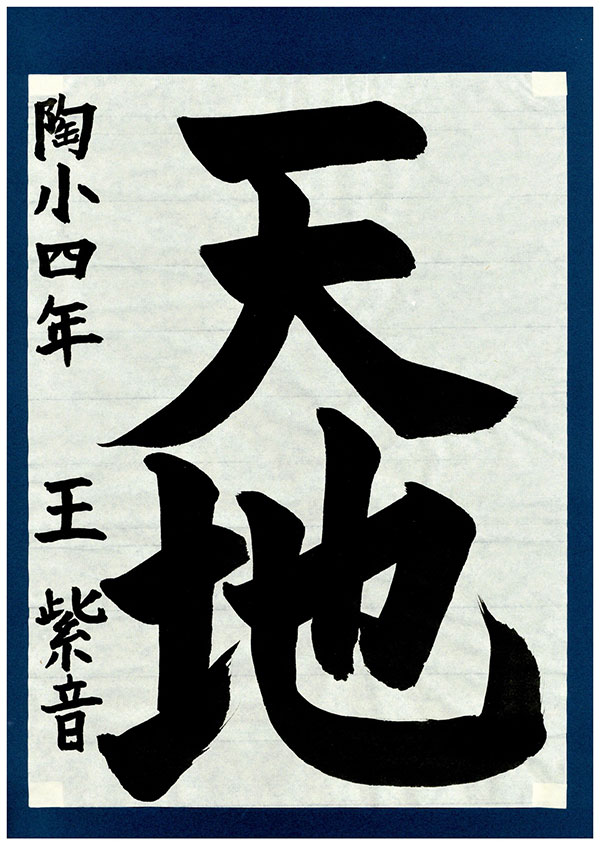 天地
陶小四年 王 紫音